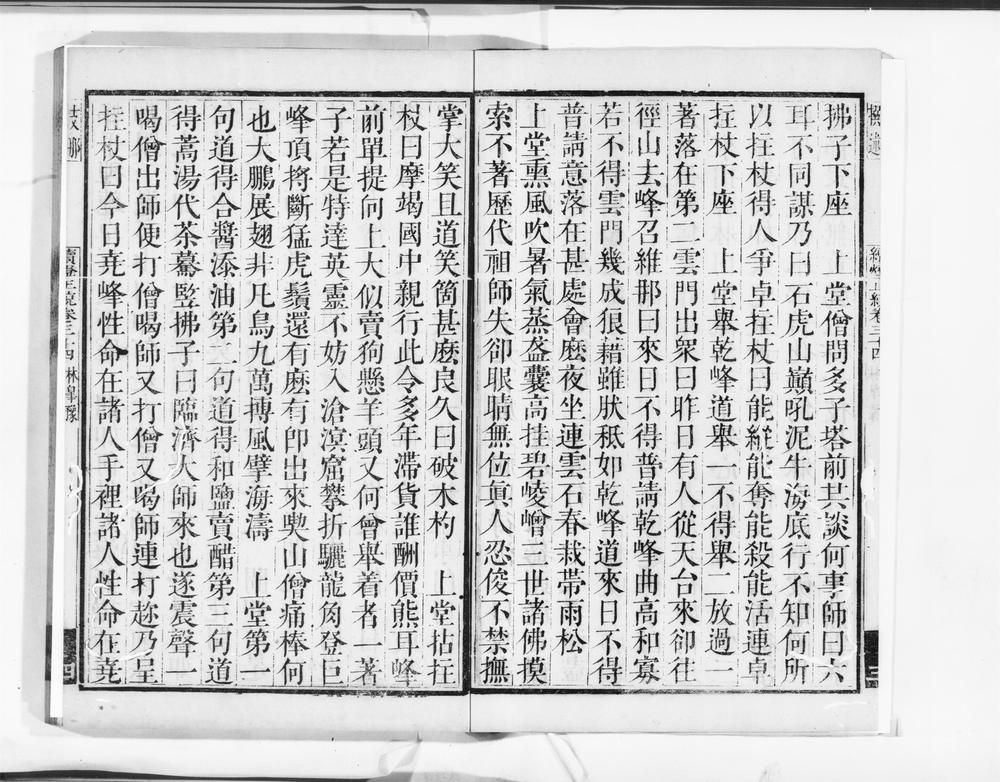 拂子下座　上堂僧問多子塔前共談何事師曰六
耳不同謀乃曰石虎山巔吼泥牛海底行不知何所
以拄杖得人爭卓拄杖曰能縱能奪能殺能活連卓
拄杖下座　上堂舉乾峰道舉一不得舉二放過一
著落在第二雲門出眾曰昨日有人從天台來卻往
徑山去峰召維那曰來日不得普請乾峰曲高和寡
若不得雲門幾成很藉雖狀秪如乾峰道來日不得
普請意落在甚處會麼夜坐連雲石春栽帶雨松
上堂熏風吹暑氣蒸盋囊高挂碧崚嶒三世諸佛摸
索不著歷代祖師失卻眼睛無位眞人忍俊不禁撫
掌大笑且道笑箇甚麼良久曰破木杓　上堂拈拄
杖曰摩竭國中親行此令多年滯貨誰酬價熊耳峰
前單提向上大似賣狗懸羊頭又何曾舉着者一著
子若是特達英靈不妨入滄溟窟攀折驪龍角登巨
峰頂捋斷猛虎鬚還有麼有卽出來喫山僧痛棒何
也大鵬展翅非凡鳥九萬摶風擘海濤　上堂第一
句道得合醬添油第二句道得和鹽賣醋第三句道
得蒿湯代茶驀豎拂子曰臨濟大師來也遂震聲一
喝僧出師便打僧喝師又打僧又喝師連打趂乃呈
拄杖曰今日堯峰性命在諸人手裡諸人性命在堯
卷三十四　林皐豫